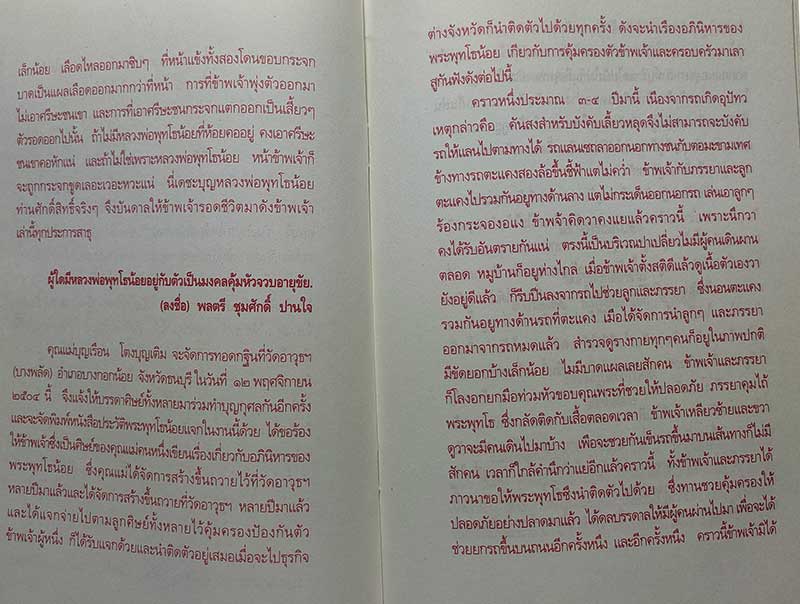 เล็กน้อย เลือดไหลออกมาซิบๆ ที่หน้าแข้งทั้งสองโดนขอบกระจก
บาดเป็นแผลเลือดออกมากกว่าที่หน้า การที่ข้าพเจ้าพุ่งตัวออกมา
ไม่เอาศรีษะชนเขา และการที่เอาศรีษะชนกระจกแตกออกเป็นเสี้ยวๆ
ตัวรอดออกไปนั้น ถ้าไม่มีหลวงพ่อพุทโธน้อยที่ห้อยคออยู่ คงเอาศรีษะ
ชนเขาคอหักแน่ และถ้าไม่ใช่เพราะหลวงพ่อพุทโธน้อย หน้าข้าพเจ้าก็
จะถูกกระจกขูดเลอะเวอะหวะแน่ นี่เดชะบุญหลวงพ่อพุทโธน้อย
ท่านศักดิ์สิทธิ์จริงๆ จึงบันดาลให้ข้าพเจ้ารอดชีวิตมาดังข้าพเจ้า
เล่านี้ทุกประการสาธุ
ผู้ใดมีหลวงพ่อพุทโธน้อยอยู่กับตัวเป็นมงคลคุ้มหัวจวบอายุขัย.
(ลงชื่อ) พลตรี ชุมศักดิ์ ปานใจ
คุณแม่บุญเรือน โตงบุญเติม จะจัดการทอดกฐินที่วัดอาวุธฯ
(บางพลัด) อำเภอบางกอกน้อย จังหวัดธนบุรี ในวันที่ ๑๒ พฤศจิกายน
๒๕๐๔ นี้ จึงแจ้งให้บรรดาศิษย์ทั้งหลายมาร่วมทำบุญกุศลกันอีกครั้ง
และจะจัดพิมพ์หนังสือประวัติพระพุทโธน้อยแจกในงานนี้ด้วย ได้ขอร้อง
ให้ข้าพเจ้าซึ่งเป็นศิษย์ของคุณแม่คนหนึ่งเขียนเรื่องเกี่ยวกับอภินิหารของ
พระพุทโธน้อย ซึ่งคุณแม่ได้จัดการสร้างขึ้นถวายไว้ที่วัดอาวุธฯ
หลายปีมาแล้วและได้จัดการสร้างขึ้นถวายที่วัดอาวุธฯ หลายปีมาแล้ว
และได้แจกจ่ายไปตามลูกศิษย์ทั้งหลายไว้คุ้มครองป้องกันตัว
ข้าพเจ้าผู้หนึ่ง ก็ได้รับแจกด้วยและนำติดตัวอยู่เสมอเมื่อจะไปธุรกิจ
ต่างจังหวัดก็นำติดตัวไปด้วยทุกครั้ง ดังจะนำเรื่องอภินิหารของ
พระพุทโธน้อย เกี่ยวกับการคุ้มครองตัวข้าพเจ้าและครอบครัวมาเล่า
สู่กันฟังดังต่อไปนี้
คราวหนึ่งประมาณ ๓-๔ ปีมานี้ เนื่องจากรถเกิดอุปัทว
เหตุกล่าวคือ คันส่งสำหรับบังคับเลี้ยวหลุดจึงไม่สามารถจะบังคับ
รถให้แล่นไปตามทางได้ รถแล่นเซถลาออกนอกทางชนกับตอมะขามเทศ
ข้างทางรถตะแคงสองล้อขึ้นชี้ฟ้าแต่ไม่คว่ำ ข้าพเจ้ากับภรรยาและลูก
ตะแคงไปรวมกันอยู่ทางด้านล่าง แต่ไม่กระเด็นออกนอกรถ เล่นเอาลูกๆ
ร้องกระจองอแง ข้าพเจ้าคิดว่าคงแย่แล้วคราวนี้ เพราะนึกว่า
คงได้รับอันตรายกันแน่ ตรงนี้เป็นบริเวณป่าเปลี่ยวไม่มีผู้คนเดินผ่าน
ตลอด หมู่บ้านก็อยู่ห่างไกล เมื่อข้าพเจ้าตั้งสติดีแล้วดูเนื้อตัวเองว่า
ยังอยู่ดีแล้ว ก็รีบปีนลงจากรถไปช่วยลูกและภรรยา ซึ่งนอนตะแคง
รวมกันอยู่ทางด้านรถที่ตะแคง เมื่อได้จัดการนำลูกๆ และภรรยา
ออกมาจากรถหมดแล้ว สำรวจดูร่างกายทุกๆคนก็อยู่ในภาพปกติ
มีขัดยอกบ้างเล็กน้อย ไม่มีบาดแผลเลยสักคน ข้าพเจ้าและภรรยา
ก็โล่งอกยกมือท่วมหัวขอบคุณพระที่ช่วยให้ปลอดภัย ภรรยาคุมไถ้
พระพุทโธ ซึ่งกลัดติดกับเสื้อตลอดเวลา ข้าพเจ้าเหลียวซ้ายและขวา
ดูว่าจะมีคนเดินไปมาบ้าง เพื่อจะช่วยกันเข็นรถขึ้นมาบนเส้นทางก็ไม่มี
สักคน เวลาก็ใกล้ค่ำนึกว่าแย่อีกแล้วคราวนี้ ทั้งข้าพเจ้าและภรรยาได้
ภาวนาขอให้พระพุทโธซึ่งนำติดตัวไปด้วย ซึ่งท่านช่วยคุ้มครองให้
ปลอดภัยอย่างปลาดมาแล้ว ได้ดลบรรดาลให้มีผู้คนผ่านไปมา เพื่อจะได้
ช่วยยกรถขึ้นบนถนนอีกครั้งหนึ่ง และอีกครั้งหนึ่ง คราวนี้ข้าพเจ้ามิได้